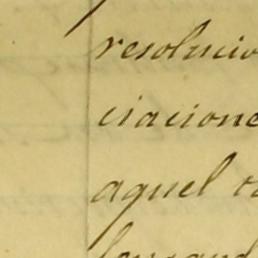 resolucio
ciacione
aquel